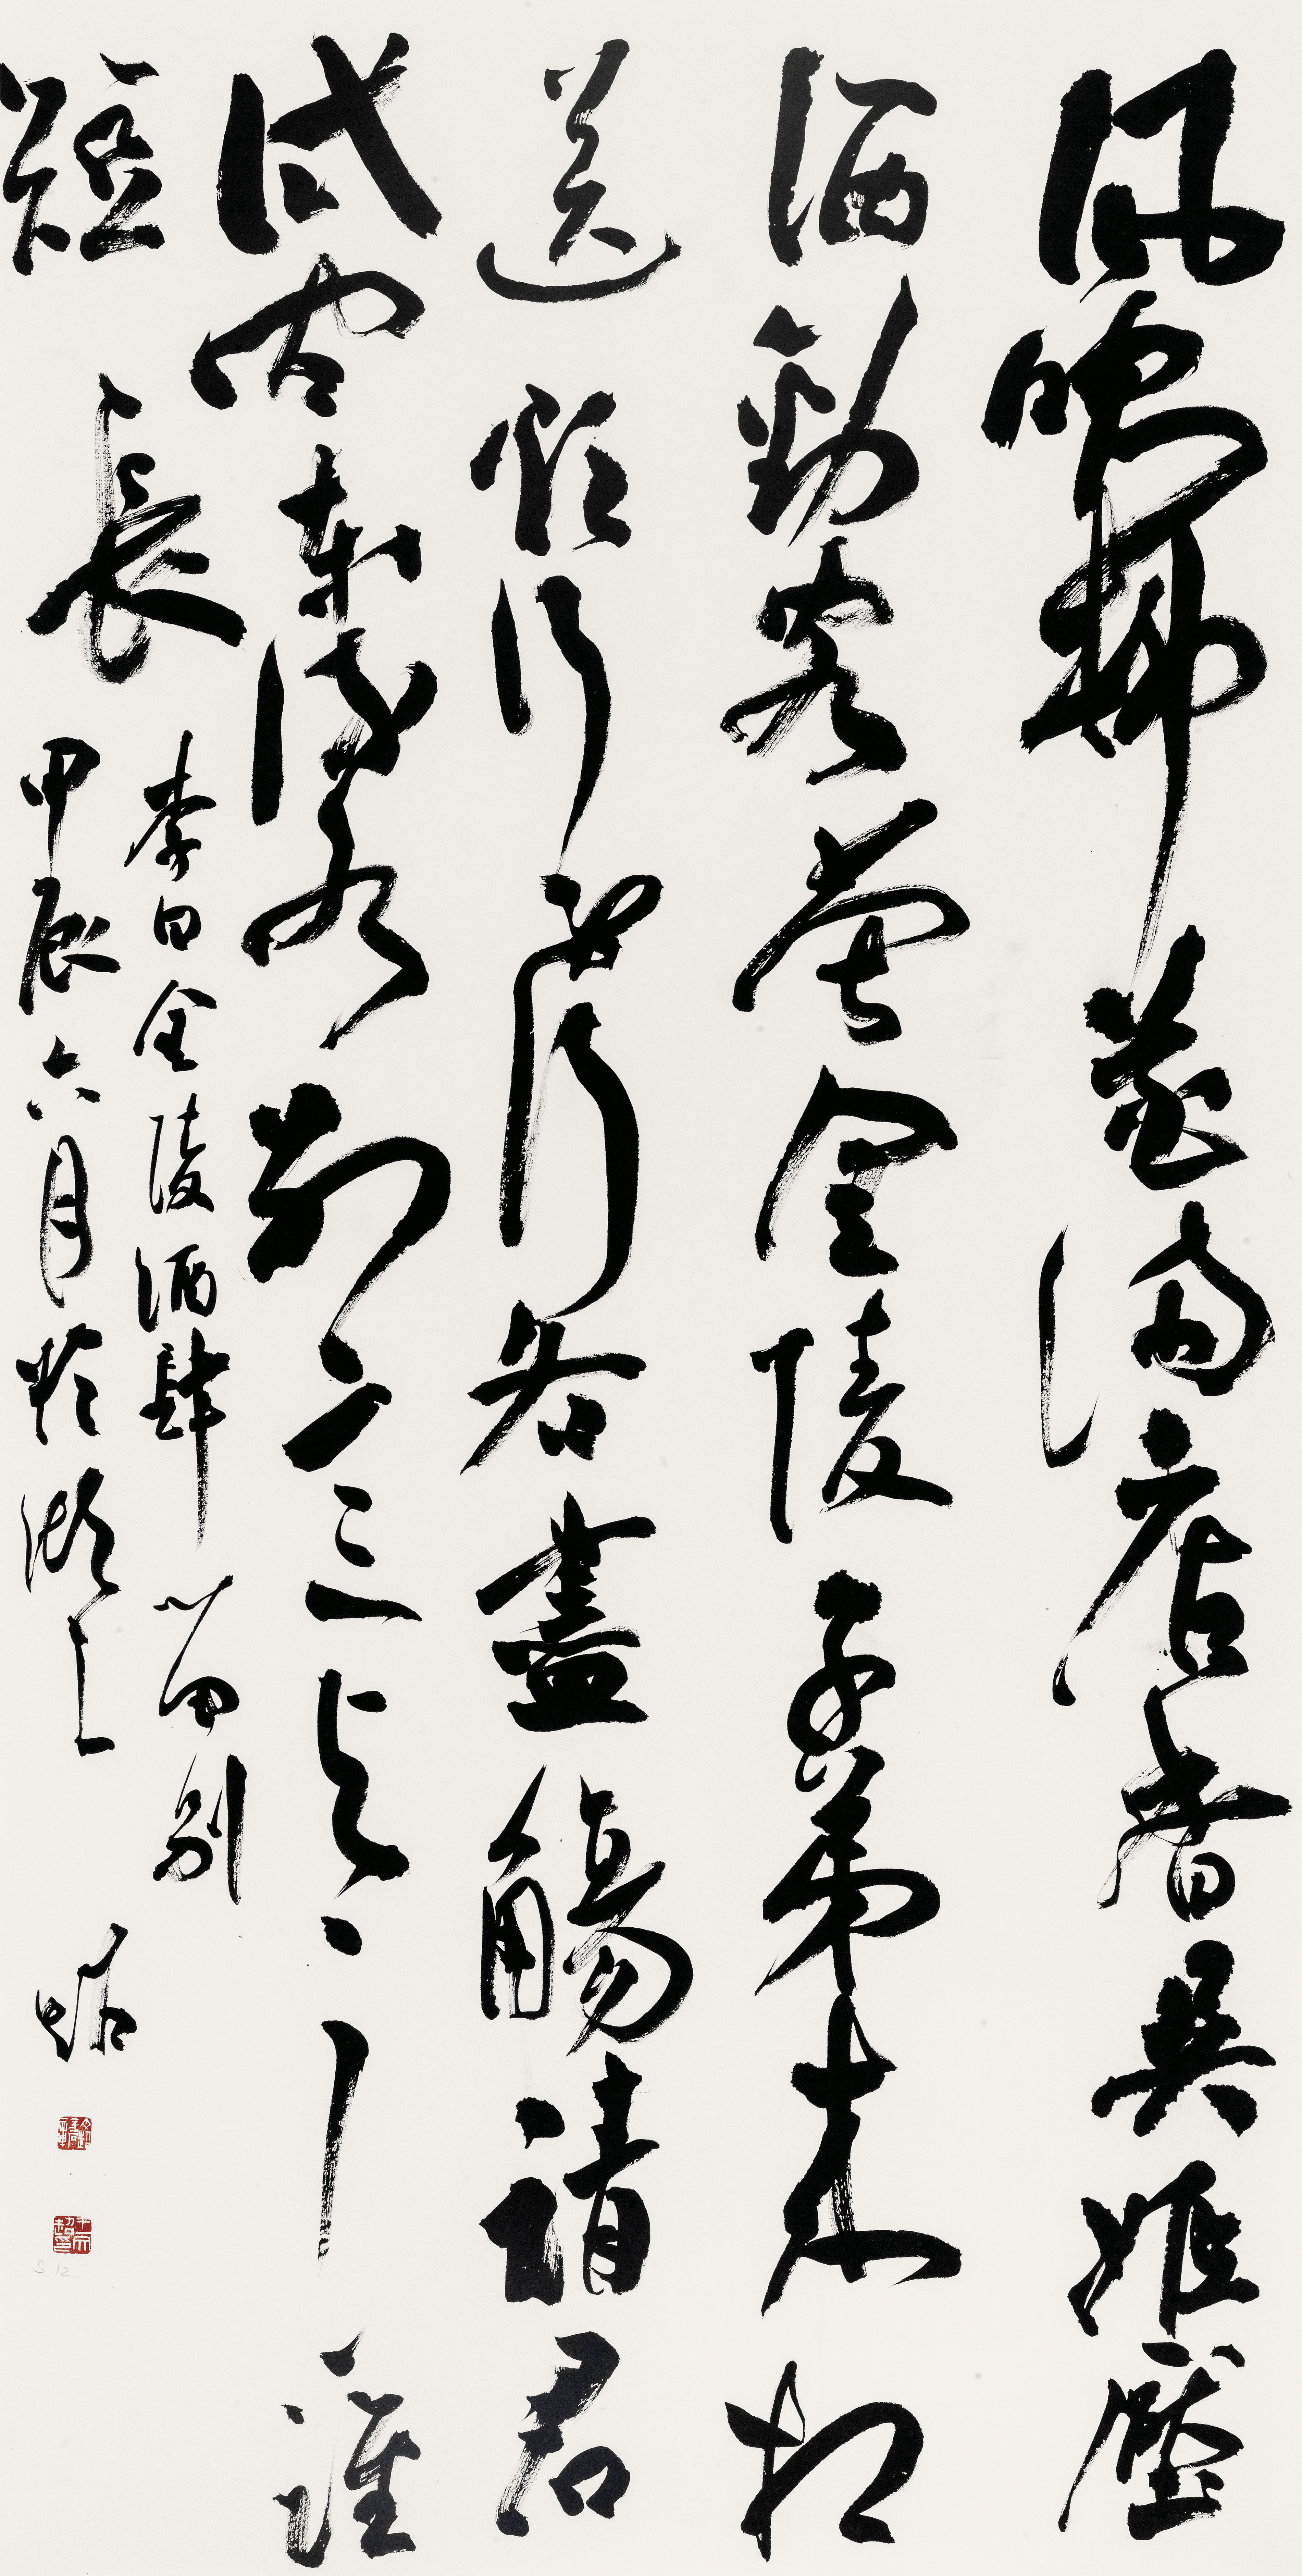 風吹柳花滿店香吳姬壓
酒勸客嘗金陵子弟來相
送欲行不行各盡觴請君
試問東流水別意與之誰
短長
李白金陵酒肆留別
甲辰六月於湖上